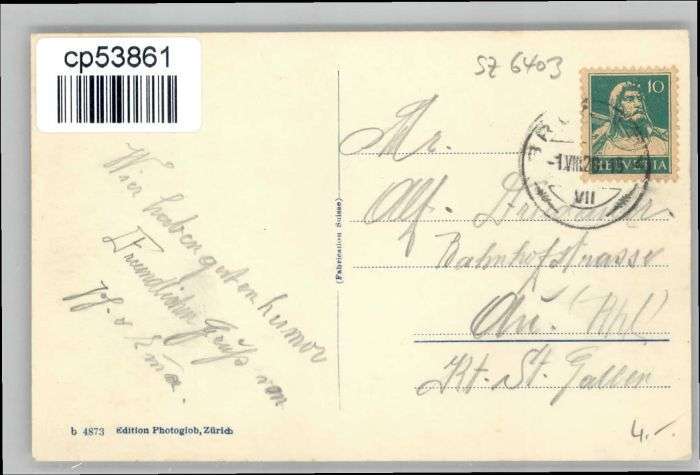 cp53861
SZ 6403
10
HELVETIA
-1.VIII.
VII
Mr.
Alf.
Bahnhofstrasse
Au. Rhl
Kt. St. Gallen
Wir haben guten humor
Freundlichen Gruß von
(Fabrication Suisse)
b 4873 Edition Photoglob, Zürich
4.-